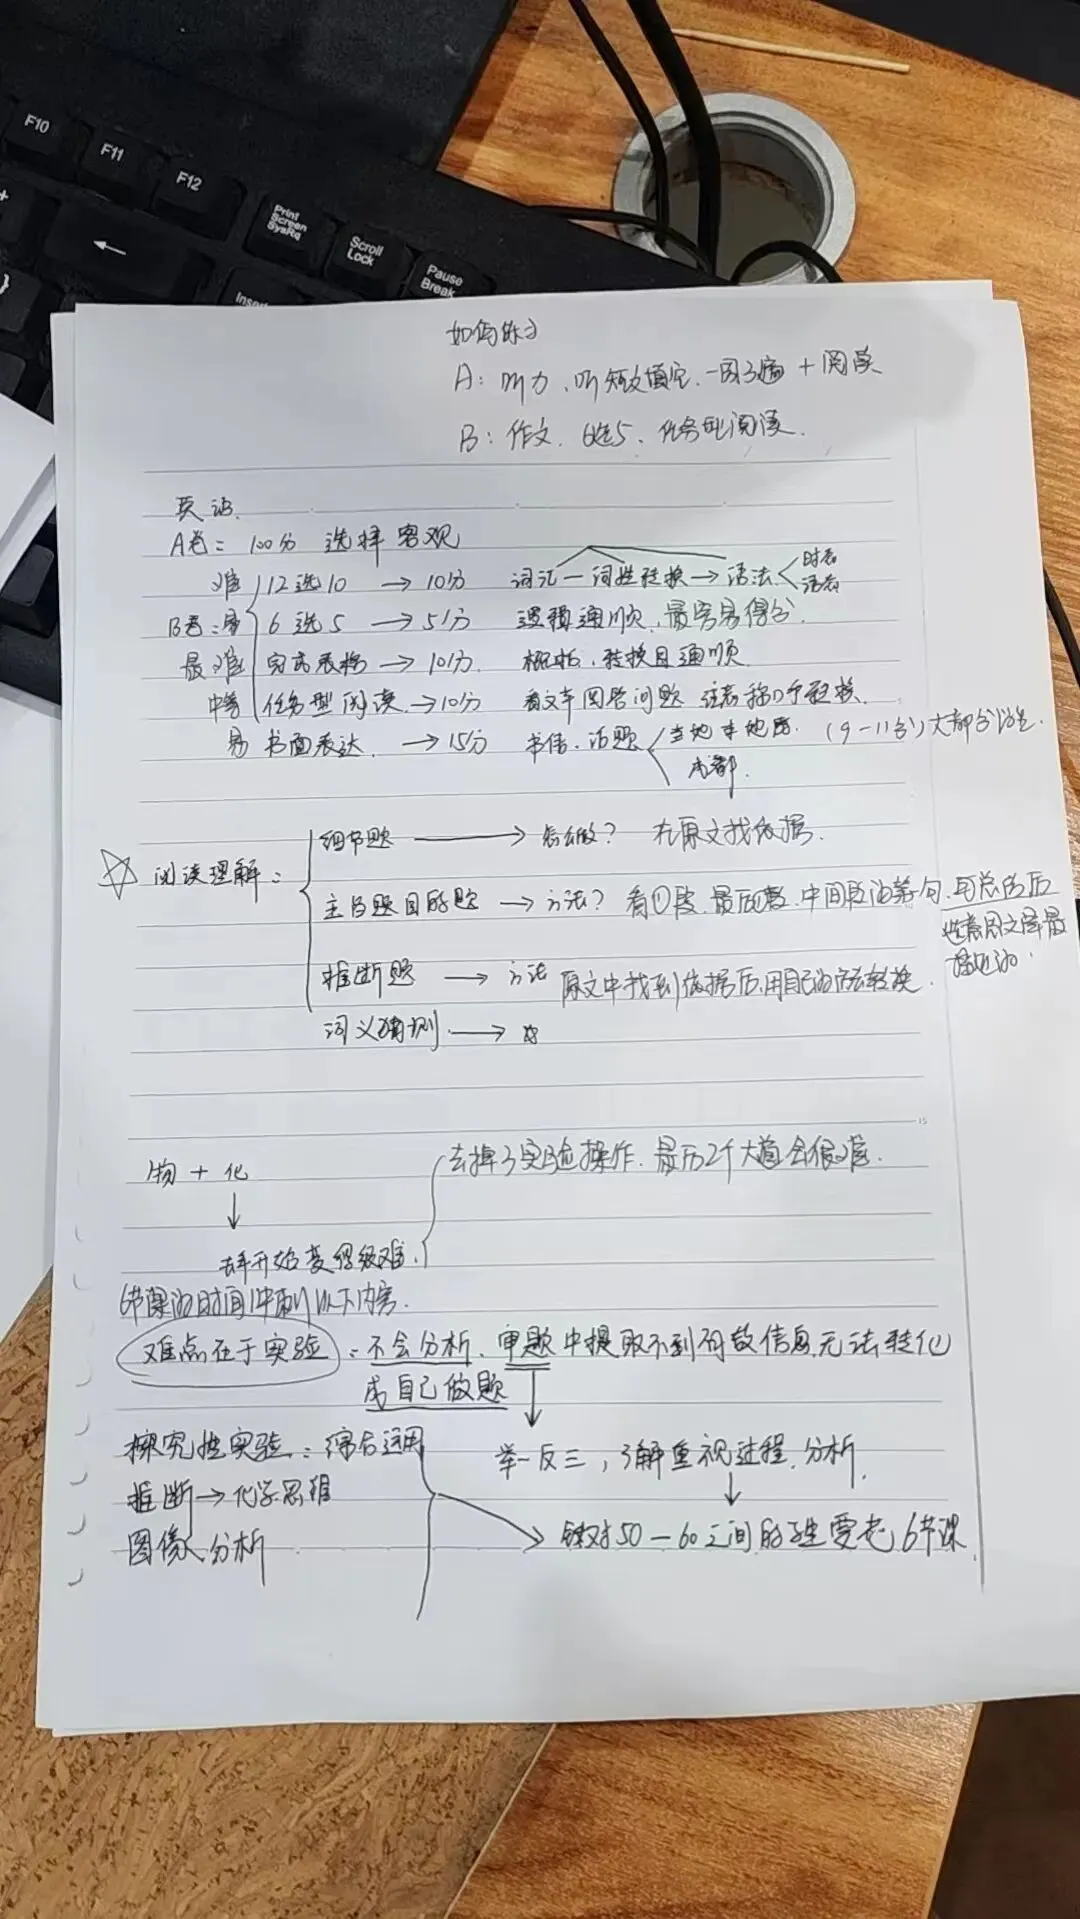 F10
F11
F12
Print Screen SysRq
Scroll Lock
Pause Break
如何练习
A: 听力、听短文填空、一周3遍 + 阅读
B: 作文、6选5、任务型阅读.
英语
A卷: 100分 选择 客观
难 12选10 → 10分 词汇—词性转换→语法 < 时态 语态
B卷: 易 6选5 → 5分 逻辑通顺、最容易得分.
最难 完成表格 → 10分. 概括、转换且通顺
中等 任务型阅读 → 10分 看文章回答问题 注意 转换.
易 书面表达. → 15分 书信、话题 < 当地 (9-11分) 大部分
成都.
☆ 阅读理解:
细节题 → 怎么做? 在原文找依据.
主旨题目的题 → 方法? 看①段、最后段、中间段的第1句.
推断题 → 方法 原文中找到依据后,用自己的 转换.
词义猜测. →
物 + 化
去掉了实验操作. 最后2个大题会很难.
去年开始变 难.
6节课的时间冲刺以下内容.
难点在于实验: 不会分析、审题中提取不到有效信息,无法转化
成自己做题
探究性实验: 综合运用
举一反三, 了解重视过程、分析
推断→化学思维
图像、分析
针对50-60之间的学生要花6节课